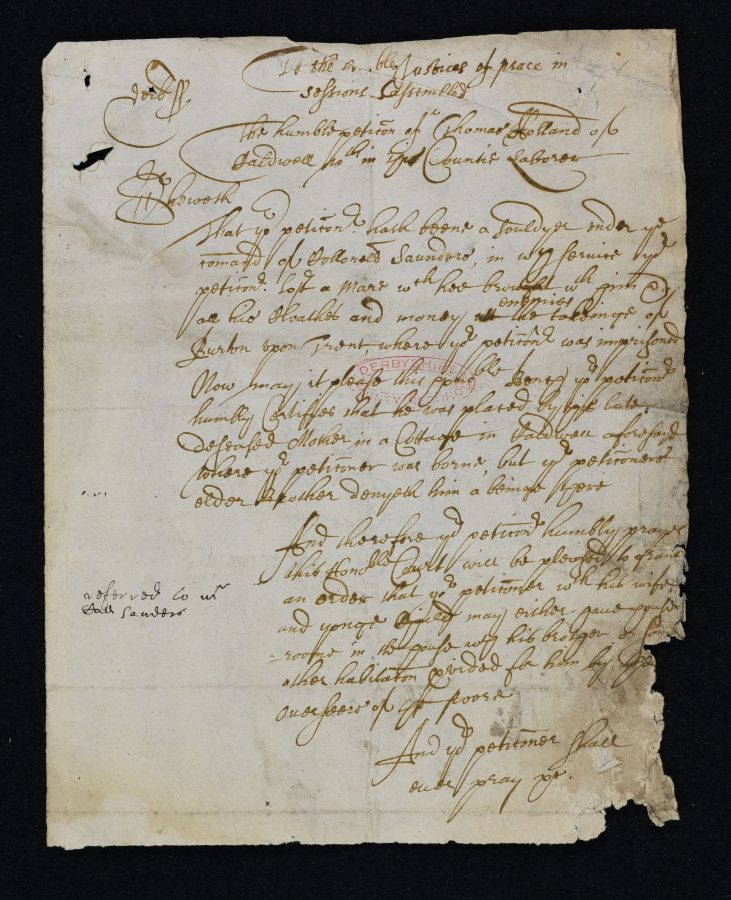 To the honoble Justices of peace in
Sessions Assembled
Derb ss
The humble peticon of Thomas Holland of
Caldwell in the Countie Laborer
Sheweth
That yr peticonr hath beene a Souldyer under ye
comand of Collonell Saunders, in wch service yr
peticonr lost a Mare wch hee brought wth him &
all his Cloathes and money at the enemies takeinge of
Burton upon Trent, where yr peticonr was imprisoned
Now may it please this honoble Bench yr peticonr
humbly Certifies that he was placed by his late
deseased Mother in a Cottage in Caldwell aforesaid
where yr peticoner was borne, but yr peticoners
elder Brother denyeth him a beinge there
And therefore yr peticonr humbly prayes
this honoble Court will be pleased to graunt
an order that yr peticoner wth his wife
and yonge Child may either have house
roome in the house wth his brother or some
other habitacon pvided for him by the
Overseers of the poore
And yr peticoner shall
ever pray &c
referred to mr
Coll Sanders
DERBYSHIRE
COUNTY RECORD